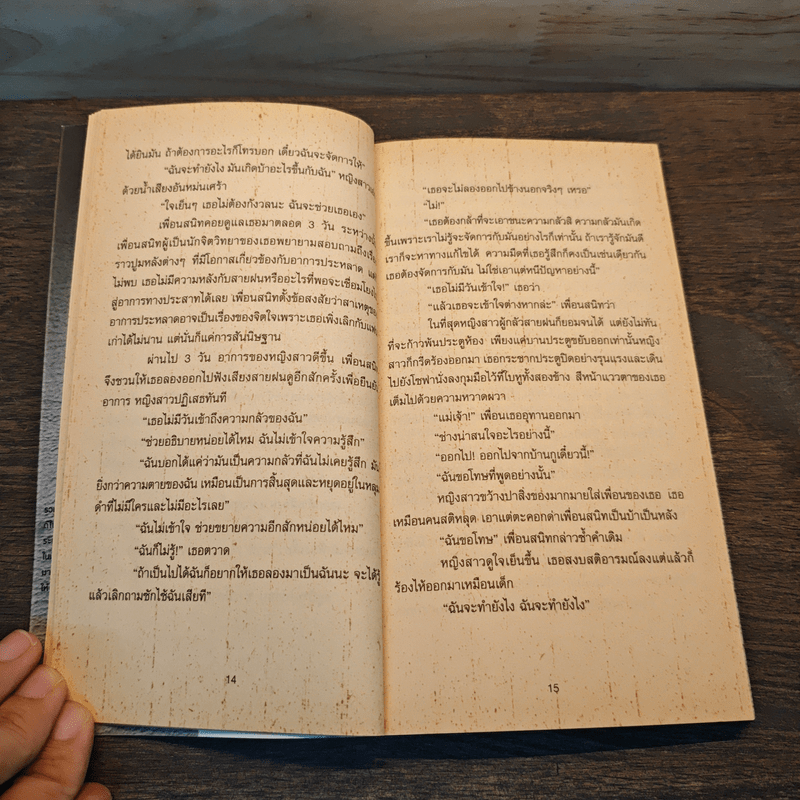 ได้ยินมัน ถ้าต้องการอะไรก็โทรบอก เดี๋ยวฉันจะจัดการให้"
"ฉันจะทำยังไง มันเกิดบ้าอะไรขึ้นกับฉัน" หญิงสาว
ด้วยน้ำเสียงอันหม่นเศร้า
"ใจเย็นๆ เธอไม่ต้องกังวลนะ ฉันจะช่วยเธอเอง"
เพื่อนสนิทคอยดูแลเธอมาตลอด 3 วัน ระหว่างนั้น
เพื่อนสนิทผู้เป็นนักจิตวิทยาของเธอพยายามสอบถามถึงเรื่อง
ราวปูมหลังต่างๆ ที่มีโอกาสเกี่ยวข้องกับอาการประหลาด แต่
ไม่พบ เธอไม่มีความหลังกับสายฝนหรืออะไรที่พอจะเชื่อมโยง
สู่อาการทางประสาทได้เลย เพื่อนสนิทตั้งข้อสงสัยว่าสาเหตุของ
อาการประหลาดอาจเป็นเรื่องของจิตใจเพราะเธอเพิ่งเลิกกับแฟน
เก่าได้ไม่นาน แต่นั่นก็แค่การสันนิษฐาน
ผ่านไป 3 วัน อาการของหญิงสาวดีขึ้น เพื่อนสนิท
จึงชวนให้เธอลองออกไปฟังเสียงสายฝนดูอีกสักครั้งเพื่อยืนยัน
อาการ หญิงสาวปฏิเสธทันที
"เธอไม่มีวันเข้าถึงความกลัวของฉัน"
"ช่วยอธิบายหน่อยได้ไหม ฉันไม่เข้าใจความรู้สึก"
"ฉันบอกได้แค่ว่ามันเป็นความกลัวที่ฉันไม่เคยรู้สึก มัน
ยิ่งกว่าความตายของฉัน เหมือนเป็นการสิ้นสุดและหยุดอยู่ในหลุม
ดำที่ไม่มีใครและไม่มีอะไรเลย"
"ฉันไม่เข้าใจ ช่วยขยายความอีกสักหน่อยได้ไหม"
"ฉันก็ไม่รู้!" เธอตวาด
"ถ้าเป็นไปได้ฉันก็อยากให้เธอลองมาเป็นฉันนะ จะได้รู้
แล้วเลิกถามซักไซ้ฉันเสียที"
14
"เธอจะไม่ลองออกไปข้างนอกจริงๆ เหรอ"
"ไม่!"
"เธอต้องกล้าที่จะเอาชนะความกลัวสิ ความกลัวมันเกิด
ขึ้นเพราะเราไม่รู้จะจัดการกับมันอย่างไรก็เท่านั้น ถ้าเรารู้จักมันดี
เราก็จะหาทางแก้ไขได้ ความมืดที่เธอรู้สึกก็คงเป็นเช่นเดียวกัน
เธอต้องจัดการกับมัน ไม่ใช่เอาแต่หนีปัญหาอย่างนี้"
"เธอไม่มีวันเข้าใจ!" เธอว่า
"แล้วเธอจะเข้าใจต่างหากล่ะ" เพื่อนสนิทว่า
ในที่สุดหญิงสาวผู้กลัวสายฝนก็ยอมจนได้ แต่ยังไม่ทัน
ที่จะก้าวพ้นประตูห้อง เพียงแค่บานประตูขยับออกเท่านั้นหญิง
สาวก็กรีดร้องออกมา เธอกระชากประตูปิดอย่างรุนแรงและเดิน
ไปยังโซฟานั่งลงกุมมือไว้ที่ใบหูทั้งสองข้าง สีหน้าแววตาของเธอ
เต็มไปด้วยความหวาดผวา
"แม่เจ้า!" เพื่อนเธออุทานออกมา
"ช่างน่าสนใจอะไรอย่างนี้"
"ออกไป! ออกไปจากบ้านกูเดี๋ยวนี้!"
"ฉันขอโทษที่พูดอย่างนั้น"
หญิงสาวขว้างปาสิ่งของมากมายใส่เพื่อนของเธอ เธอ
เหมือนคนสติหลุด เอาแต่ตะคอกด่าเพื่อนสนิทเป็นบ้าเป็นหลัง
"ฉันขอโทษ" เพื่อนสนิทกล่าวซ้ำคำเดิม
หญิงสาวดูใจเย็นขึ้น เธอสงบสติอารมณ์ลงแต่แล้วก็
ร้องไห้ออกมาเหมือนเด็ก
"ฉันจะทำยังไง ฉันจะทำยังไง"
15